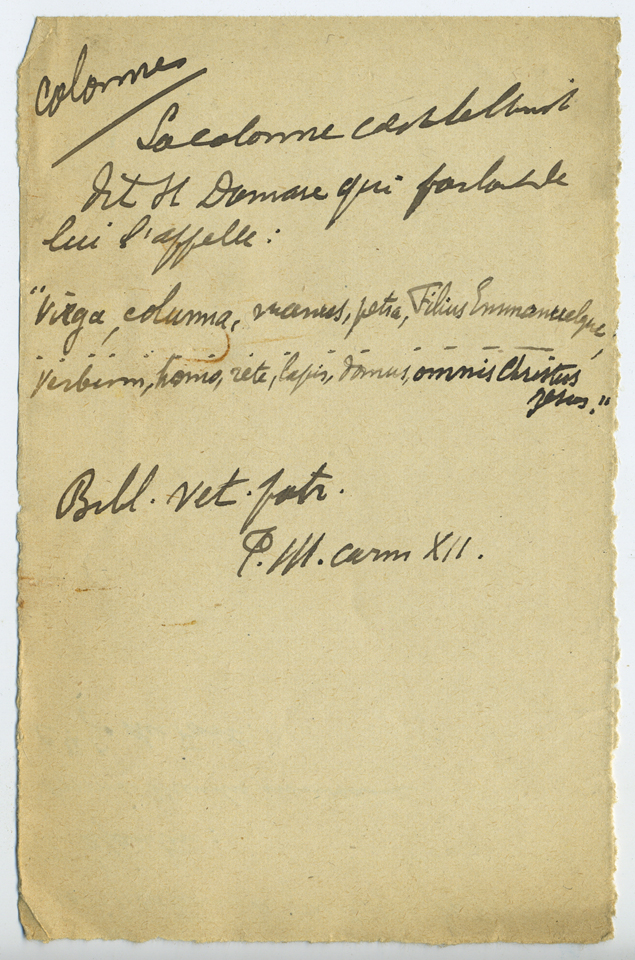 colonnes
La colonne c'est le Christ
dit St Damase qui parlant de
lui l'appelle :
"Virga, columna, manus, petra, Filius Emmanuelque,
Verbum, homo, rete, lapis, domus, omnis Christus
Jesus."
Bibl. vet. patr.
P. M. carm XII.